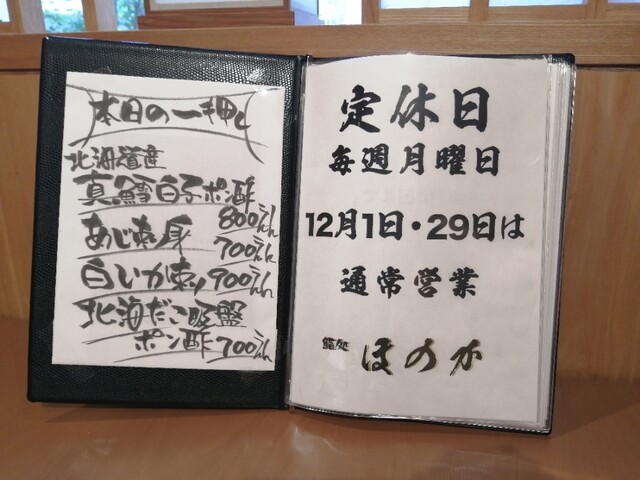 本日の一押し
北海道産
真鱈白子ポン酢
800えん
あじ刺身
700えん
白いか刺し 900えん
北海だこ吸盤
ポン酢 700えん
定休日
毎週月曜日
12月1日・29日は
通常営業
鮨処 ほのか